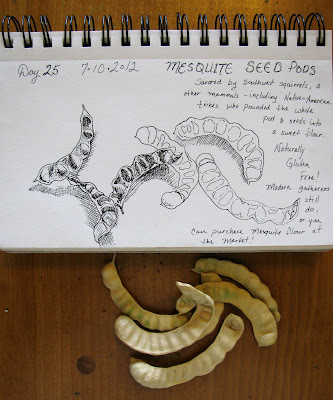 Day 25 7·10·2012 MESQUITE SEED PODS
Savored by Southwest squirrels, &
other mammals - including Native-American
tribes who pounded the whole
pod & seeds into
a sweet flour.
Naturally
Gluten
Free!
Modern gatherers
still
do,
or you
can purchase Mesquite flour at
the Market!